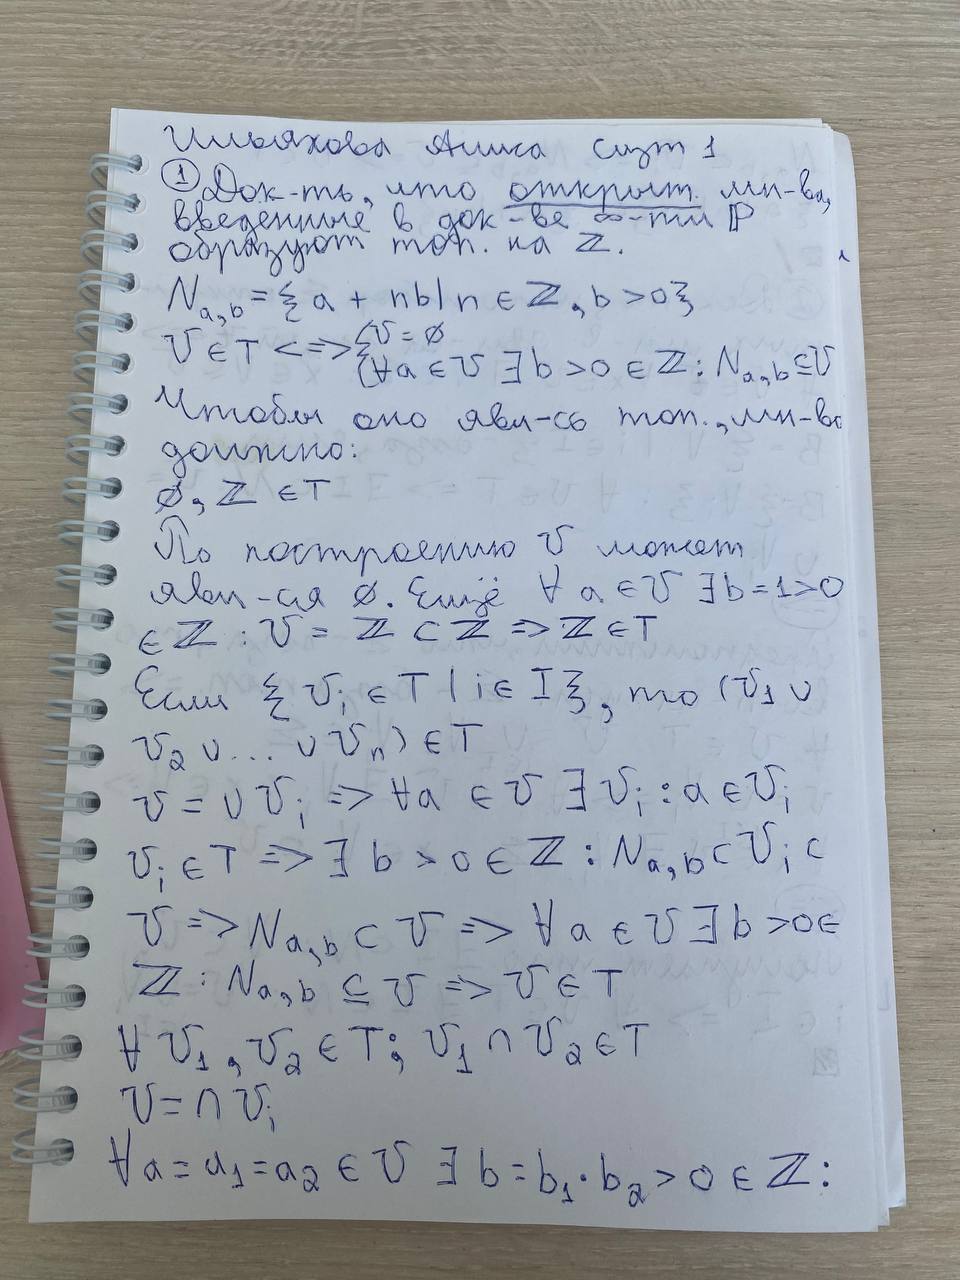 Ильяхова Алиса СИЗТ 1
① Док-ть, что открыт. мн-ва,
введенные в док-ве ∞-ти ℙ
образуют топ. на ℤ.
N_{a,b} = {a + nb | n ∈ ℤ, b > 0}
U ∈ T <=> { U = ∅
( ∀a ∈ U ∃ b > 0 ∈ ℤ : N_{a,b} ⊆ U
Чтобы оно явл-сь топ., мн-во
должно:
∅, ℤ ∈ T
По построению U может
явл-ся ∅. Ещё ∀ a ∈ U ∃ b = 1 > 0
∈ ℤ : U = ℤ ⊂ ℤ => ℤ ∈ T
Если { U_i ∈ T | i ∈ I }, то (U_1 ∪
U_2 ∪ ... ∪ U_n) ∈ T
U = ∪ U_i => ∀a ∈ U ∃ U_i : a ∈ U_i
U_i ∈ T => ∃ b > 0 ∈ ℤ : N_{a,b} ⊂ U_i ⊂
U => N_{a,b} ⊂ U => ∀ a ∈ U ∃ b > 0 ∈
ℤ : N_{a,b} ⊆ U => U ∈ T
∀ U_1, U_2 ∈ T; U_1 ∩ U_2 ∈ T
U = ∩ U_i
∀ a = a_1 = a_2 ∈ U ∃ b = b_1 · b_2 > 0 ∈ ℤ :